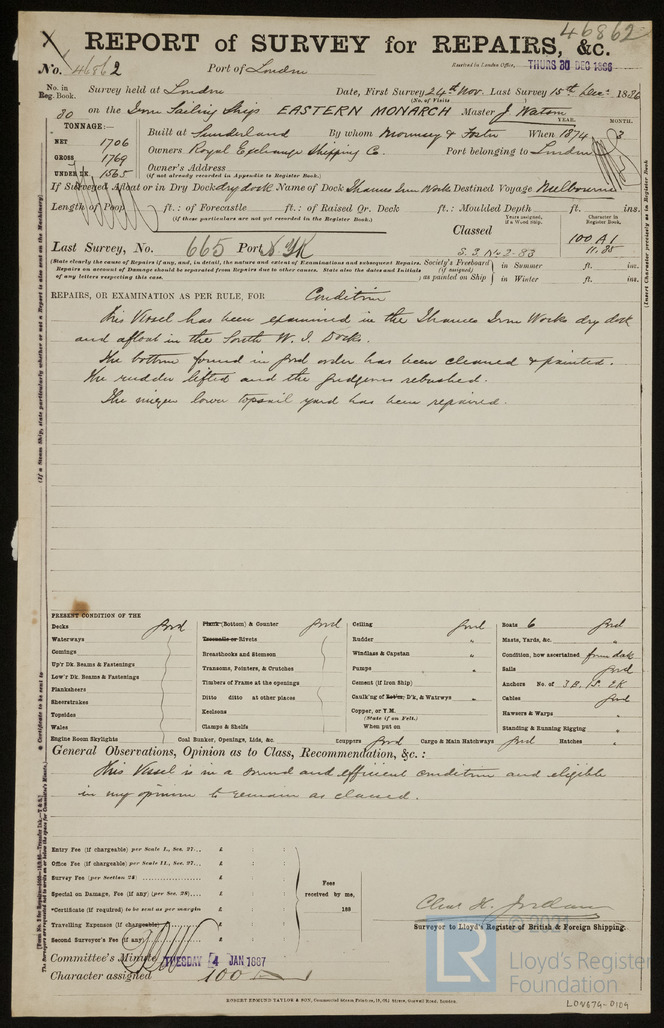 46862
REPORT of SURVEY for REPAIRS, &c.
No. 46862 Port of London Received in London Office, THURS 30 DEC 1886
No. in Reg. Book. Survey held at London Date, First Survey 24th Nov. Last Survey 15th Dec. 1886
(No. of Visits )
80 on the Iron Sailing Ship EASTERN MONARCH Master J Watson
TONNAGE:— YEAR. MONTH.
NET 1706 Built at Sunderland By whom Mounsey & Foster When 1874 3
GROSS 1769 Owners Royal Exchange Shipping Co. Port belonging to London
UNDER DK 1565 Owner's Address
(if not already recorded in Appendix to Register Book.)
If Surveyed Afloat or in Dry Dock dry dock Name of Dock Thames Iron Works Destined Voyage Melbourne
Length of Poop ft.: of Forecastle ft.: of Raised Qr. Deck ft.: Moulded Depth ft. ins.
(if these particulars are not yet recorded in the Register Book.)
Years assigned, if a Wood Ship. Character in Register Book.
Classed 100 A1
11.85
Last Survey, No. 665 Port S.S. No 2-83
(State clearly the cause of Repairs if any, and, in detail, the nature and extent of Examinations and subsequent Repairs.
Repairs on account of Damage should be separated from Repairs due to other causes. State also the dates and Initials
of any letters respecting this case.)
Society's Freeboard (if assigned) as painted on Ship in Summer ft. ins.
in Winter ft. ins.
REPAIRS, OR EXAMINATION AS PER RULE, FOR Condition
This Vessel has been examined in the Thames Iron Works dry dock
and afloat in the South W. I. Docks.
The bottom found in good order has been cleaned & painted.
The rudder lifted and the gudgeons rebushed.
The mizen lower topsail yard has been repaired.
PRESENT CONDITION OF THE
Decks good
Waterways
Comings
Up'r Dk. Beams & Fastenings
Low'r Dk. Beams & Fastenings
Planksheers
Sheerstrakes
Topsides
Wales
Engine Room Skylights
Plank (Bottom) & Counter good
Treenails or Rivets
Breasthooks and Stemson
Transoms, Pointers, & Crutches
Timbers of Frame at the openings
Ditto ditto at other places
Keelsons
Clamps & Shelfs
Coal Bunker, Openings, Lids, &c.
Ceiling good
Rudder "
Windlass & Capstan "
Pumps "
Cement (if Iron Ship) "
Caulk'ng of Bot'm, D'k, & Watrwys "
Copper, or Y.M.
(State if on Felt.)
When put on
Scuppers good Cargo & Main Hatchways good Hatches "
Boats 6 good
Masts, Yards, &c. "
Condition, how ascertained from deck
Sails good
Anchors No. of 3 B. 1 S. 2 K
Cables good
Hawsers & Warps "
Standing & Running Rigging "
General Observations, Opinion as to Class, Recommendation, &c.:
This Vessel is in a sound and efficient condition and eligible
in my opinion to remain as classed.
Entry Fee (if chargeable) per Scale I., Sec. 27... £ : :
Office Fee (if chargeable) per Scale II., Sec. 27... £ : :
Survey Fee (per Section 28) £ : :
Special on Damage, Fee (if any) (per Sec. 28) £ : :
*Certificate (if required) to be sent as per margin £ : :
Travelling Expenses (if chargeable) £ : :
Second Surveyor's Fee (if any) £ : :
Fees received by me, 188
Chas H. Jordan
Surveyor to Lloyd's Register of British & Foreign Shipping.
Committee's Minute TUESDAY 4 JAN 1887
Character assigned 100 A 1
ROBERT EDMUND TAYLOR & SON,
© 2021
LR
Lloyd's Register
Foundation
LDN674-0109